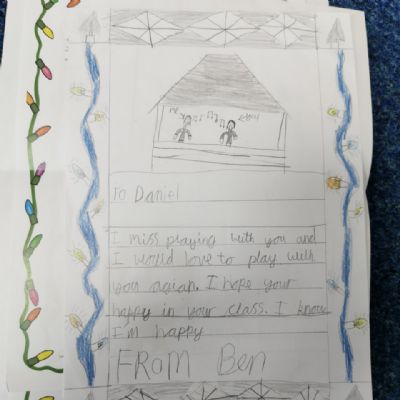 me you
To Daniel
I miss playing with you and
I would love to play with
you again. I hope your
happy in your class. I know
I'm happy
FROM Ben